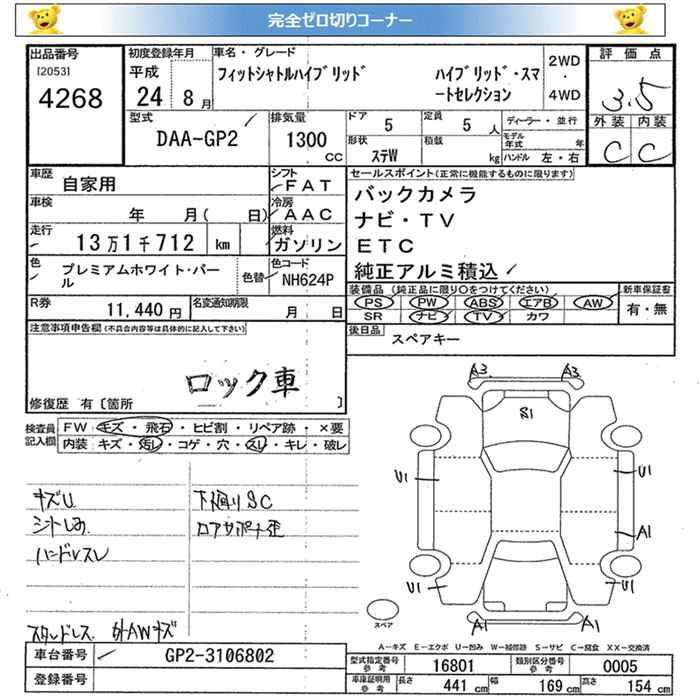 完全ゼロ切りコーナー
出品番号 [2053] 4268
初度登録年月 平成 24年 8月
車名・グレード フィットシャトルハイブリッド ハイブリッド・スマートセレクション
2WD・4WD
評価点 3.5
外装 内装
C C
型式 DAA-GP2
排気量 1300 CC
ドア 5 定員 5人
形状 ステW 積載 kg
ディーラー・並行
モデル年式 年
ハンドル 左・右
車歴 自家用
シフト FAT
車検 年 月( 日)
冷房 AAC
走行 13万1千712 km
燃料 ガソリン
色 プレミアムホワイト・パール
色替
色コード NH624P
R券 11,440円
名変通知期限 月 日
セールスポイント(正常に機能するものに限ります)
バックカメラ
ナビ・TV
ETC
純正アルミ積込
装備品(純正品に限り○をつけてください) 新車保証書
PS PW ABS エアB AW 有・無
SR ナビ TV カワ
後日品 スペアキー
注意事項申告欄(不具合内容等は具体的に記入して下さい)
ロック車
修復歴 有〔箇所 〕
検査員記入欄
FW キズ・飛石・ヒビ割・リペア跡・×要
内装 キズ・汚レ・コゲ・穴・スレ・キレ・破レ
キズU 下廻りSC
シートしみ ロアサポート歪
ハンドルスレ
スタッドレス 外AWキズ
A3 A3
S1
U1 U1
A1
U1 U1
A1 A1
スペア
A-キズ E-エクボ U-凹み W-補修跡 S-サビ C-腐食 XX-交換済
車台番号 GP2-3106802
登録番号
型式指定番号 参考 16801 類別区分番号 参考 0005
車庫証明用 参考 長さ 441 cm 幅 169 cm 高さ 154 cm